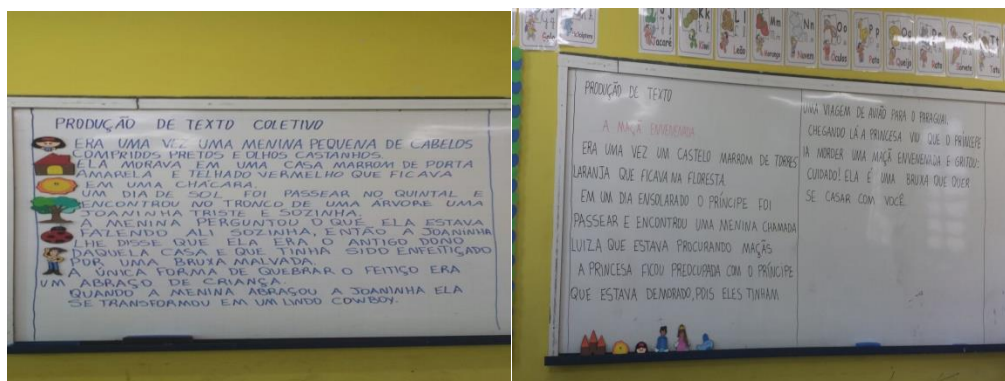 PRODUÇÃO DE TEXTO COLETIVO
ERA UMA VEZ UMA MENINA PEQUENA DE CABELOS
COMPRIDOS PRETOS E OLHOS CASTANHOS.
ELA MORAVA EM UMA CASA MARROM DE PORTA
AMARELA E TELHADO VERMELHO QUE FICAVA
EM UMA CHÁCARA.
UM DIA DE SOL FOI PASSEAR NO QUINTAL E
ENCONTROU NO TRONCO DE UMA ÁRVORE UMA
JOANINHA TRISTE E SOZINHA.
A MENINA PERGUNTOU O QUE ELA ESTAVA
FAZENDO ALI SOZINHA, ENTÃO A JOANINHA
LHE DISSE QUE ELA ERA O ANTIGO DONO
DAQUELA CASA E QUE TINHA SIDO ENFEITIÇADO
POR UMA BRUXA MALVADA.
A ÚNICA FORMA DE QUEBRAR O FEITIÇO ERA
UM ABRAÇO DE CRIANÇA.
QUANDO A MENINA ABRAÇOU A JOANINHA ELA
SE TRANSFORMOU EM UM LINDO COWBOY.
Jj
Kk
Ll
Mm
Nn
Oo
Pp
Qq
Rr
Ss
Tt
Jacaré
Kiwi
Leão
Navio
Óculos
Pato
Queijo
Rato
Sorvete
PRODUÇÃO DE TEXTO
A MAÇÃ ENVENENADA
ERA UMA VEZ UM CASTELO MARROM DE TORRES
LARANJA QUE FICAVA NA FLORESTA.
EM UM DIA ENSOLARADO O PRÍNCIPE FOI
PASSEAR E ENCONTROU UMA MENINA CHAMADA
LUIZA QUE ESTAVA PROCURANDO MAÇÃS
A PRINCESA FICOU PREOCUPADA COM O PRÍNCIPE
QUE ESTAVA DEMORADO, POIS ELES TINHAM
UMA VIAGEM DE AVIÃO PARA O PARAGUAI.
CHEGANDO LÁ A PRINCESA VIU QUE O PRÍNCIPE
IA MORDER UMA MAÇÃ ENVENENADA E GRITOU:
CUIDADO! ELA É UMA BRUXA QUE QUER
SE CASAR COM VOCÊ.